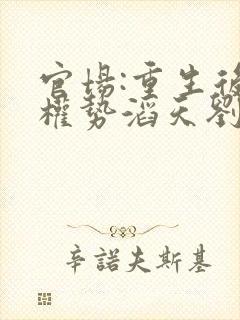 官场:重生後
權势滔天劉
辛諾夫斯基